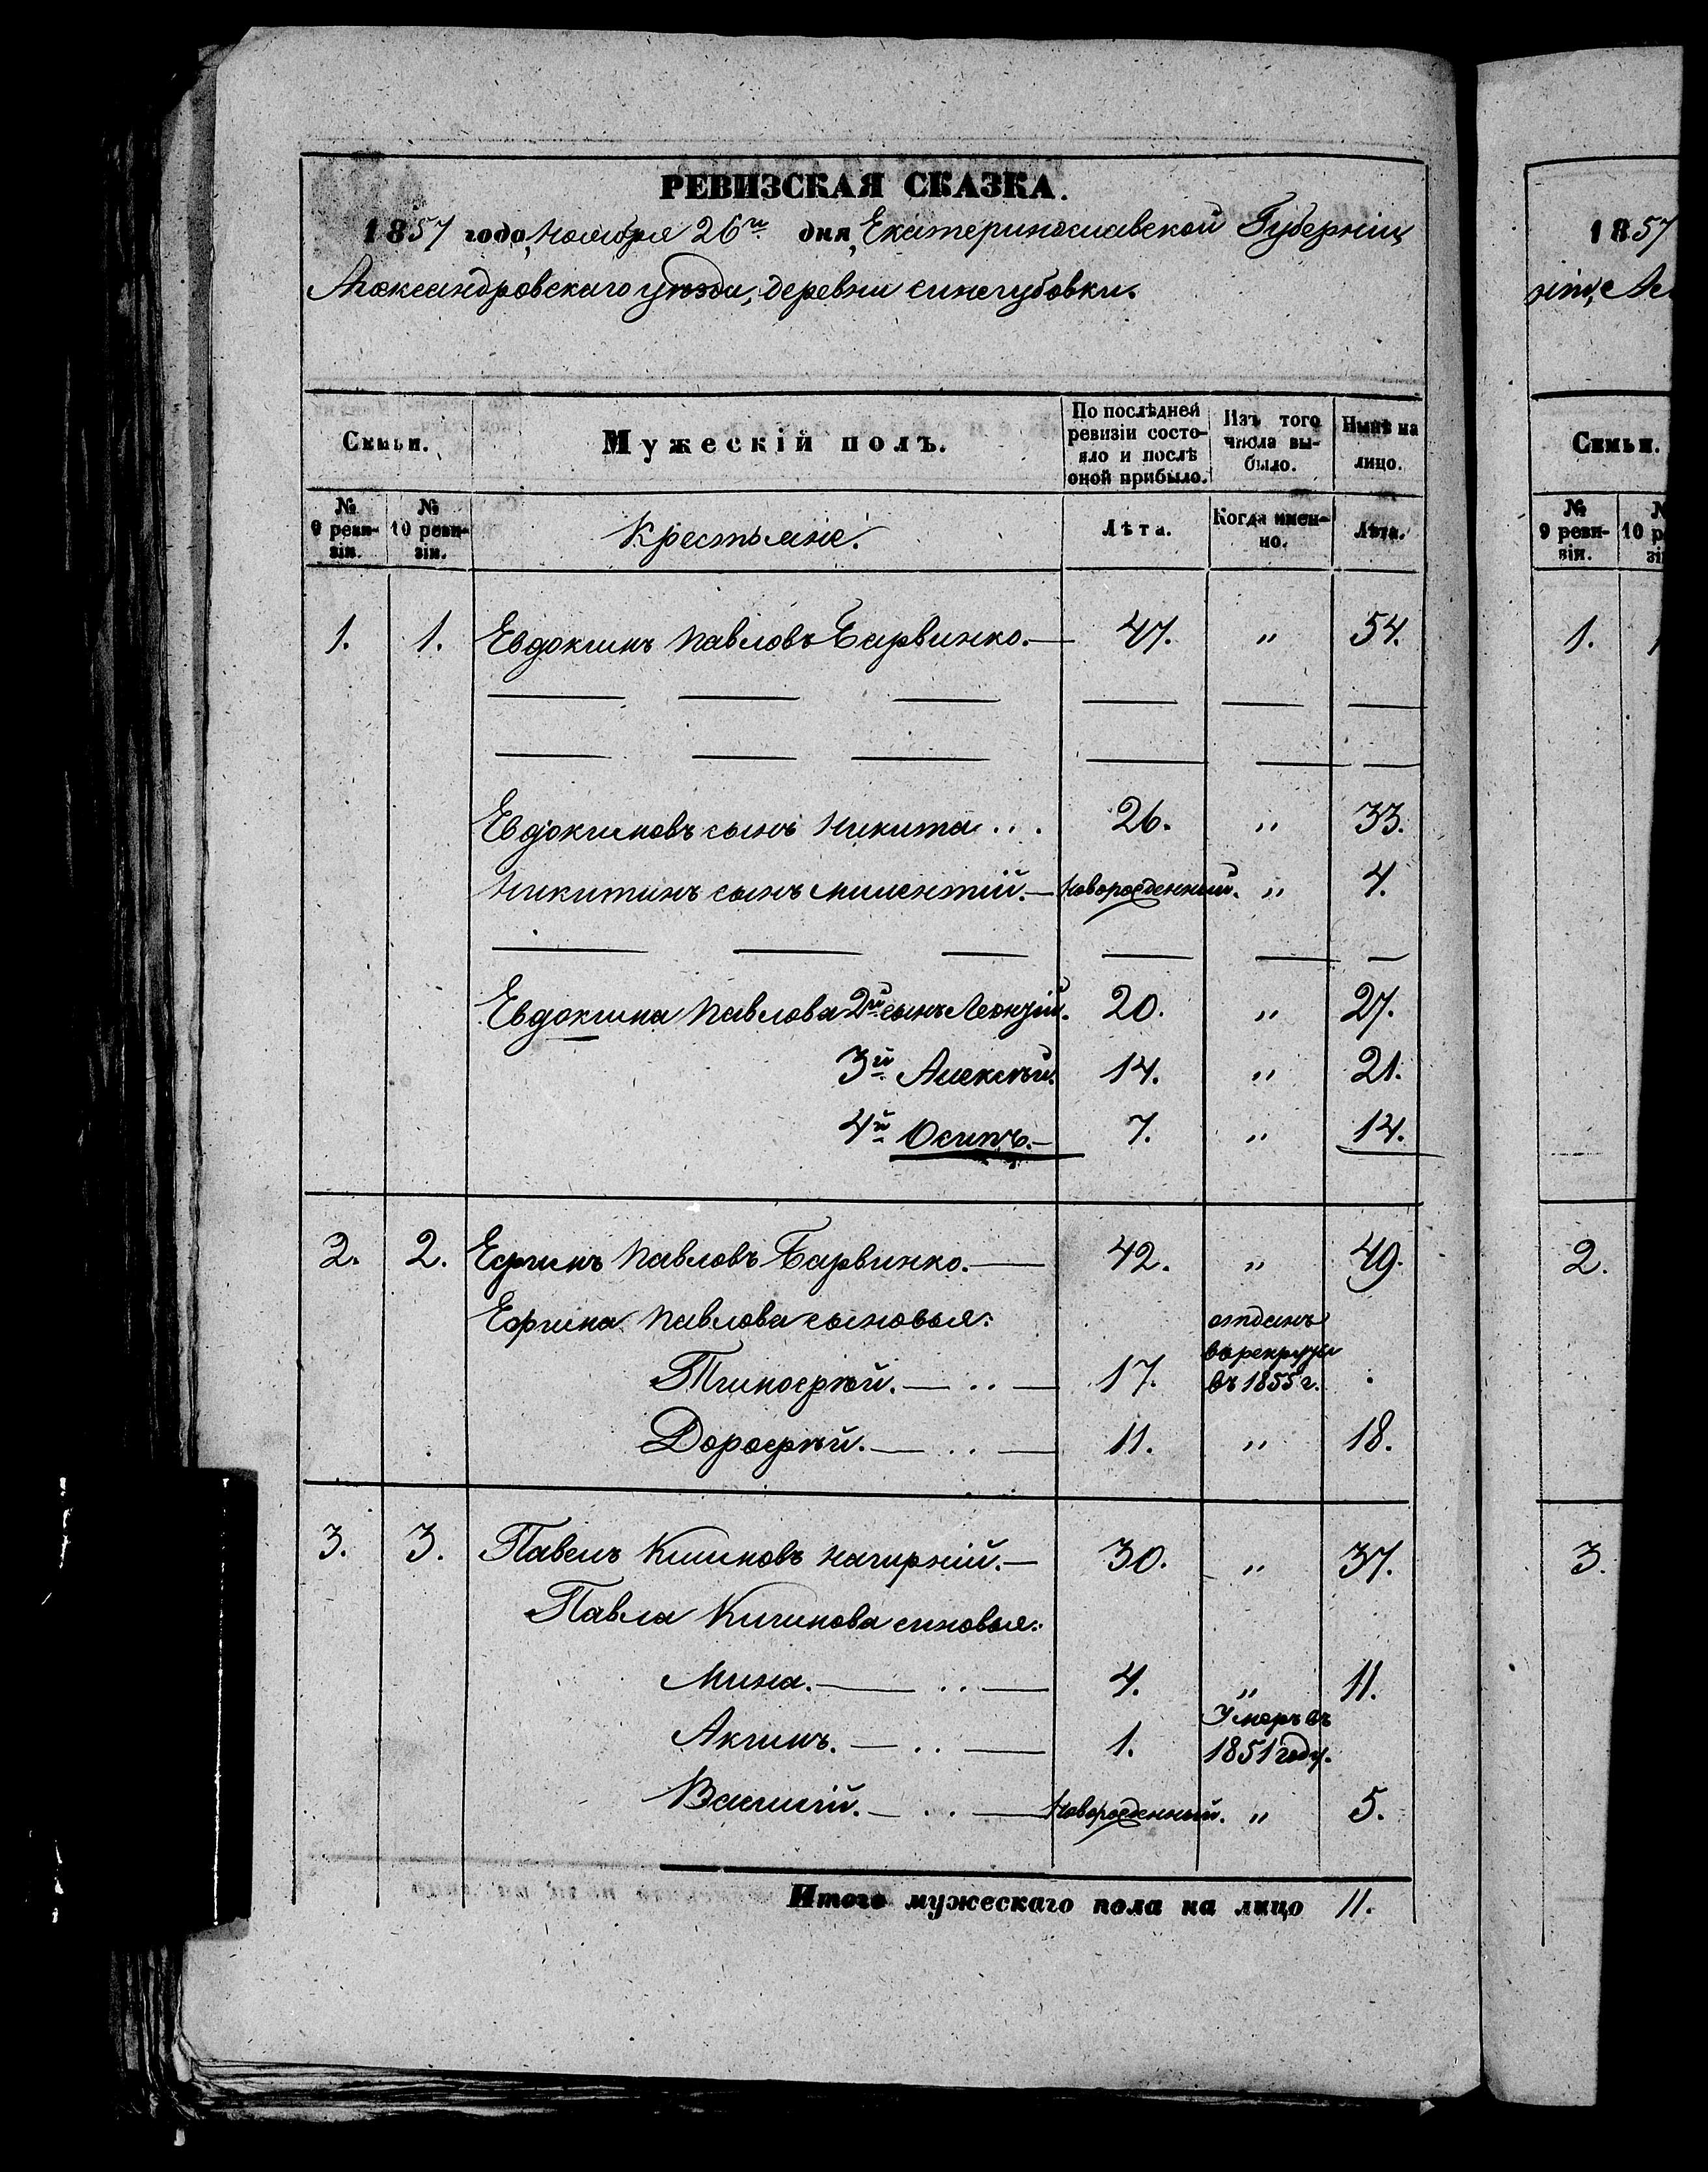 РЕВИЗСКАЯ СКАЗКА.
1857 года, Ноября 26го дня, Екатеринославской Губерніи,
Александровскаго уѣзда, деревни синегубовки.
Семьи.
Мужескій полъ.
По послѣдней ревизіи состояло и послѣ оной прибыло.
Изъ того числа выбыло.
Нынѣ на лицо.
№ 9 ревизіи.
№ 10 ревизіи.
Крестьяне.
Лѣта.
Когда именно.
Лѣта.
1. 1. Евдокимъ Павловъ Барвинко.— 47. " 54.
Евдокимовъ сынъ Никита... 26. " 33.
Никитинъ сынъ Милентій.— Новорожденный. " 4.
Евдокима Павлова 2й сынъ Леонтій. 20. " 27.
3й Алексѣй. 14. " 21.
4й Осипъ.— 7. " 14.
2. 2. Ефимъ Павловъ Барвинко.— 42. " 49.
Ефима Павлова сыновья:
Тимофѣй.— .. — 17. отданъ въ рекруты въ 1855 г.
Дорофѣй.— .. — 11. " 18.
3. 3. Павелъ Климовъ Нагирній.— 30. " 37.
Павла Климова сыновья:
Мина.— .. — 4. " 11.
Акимъ.— .. — 1. Умеръ въ 1851 году.
Василій.— .. — Новорожденный. " 5.
Итого мужескаго пола на лицо 11.
1857
Семьи.
№ 9 ревизіи.
1.
2.
3.